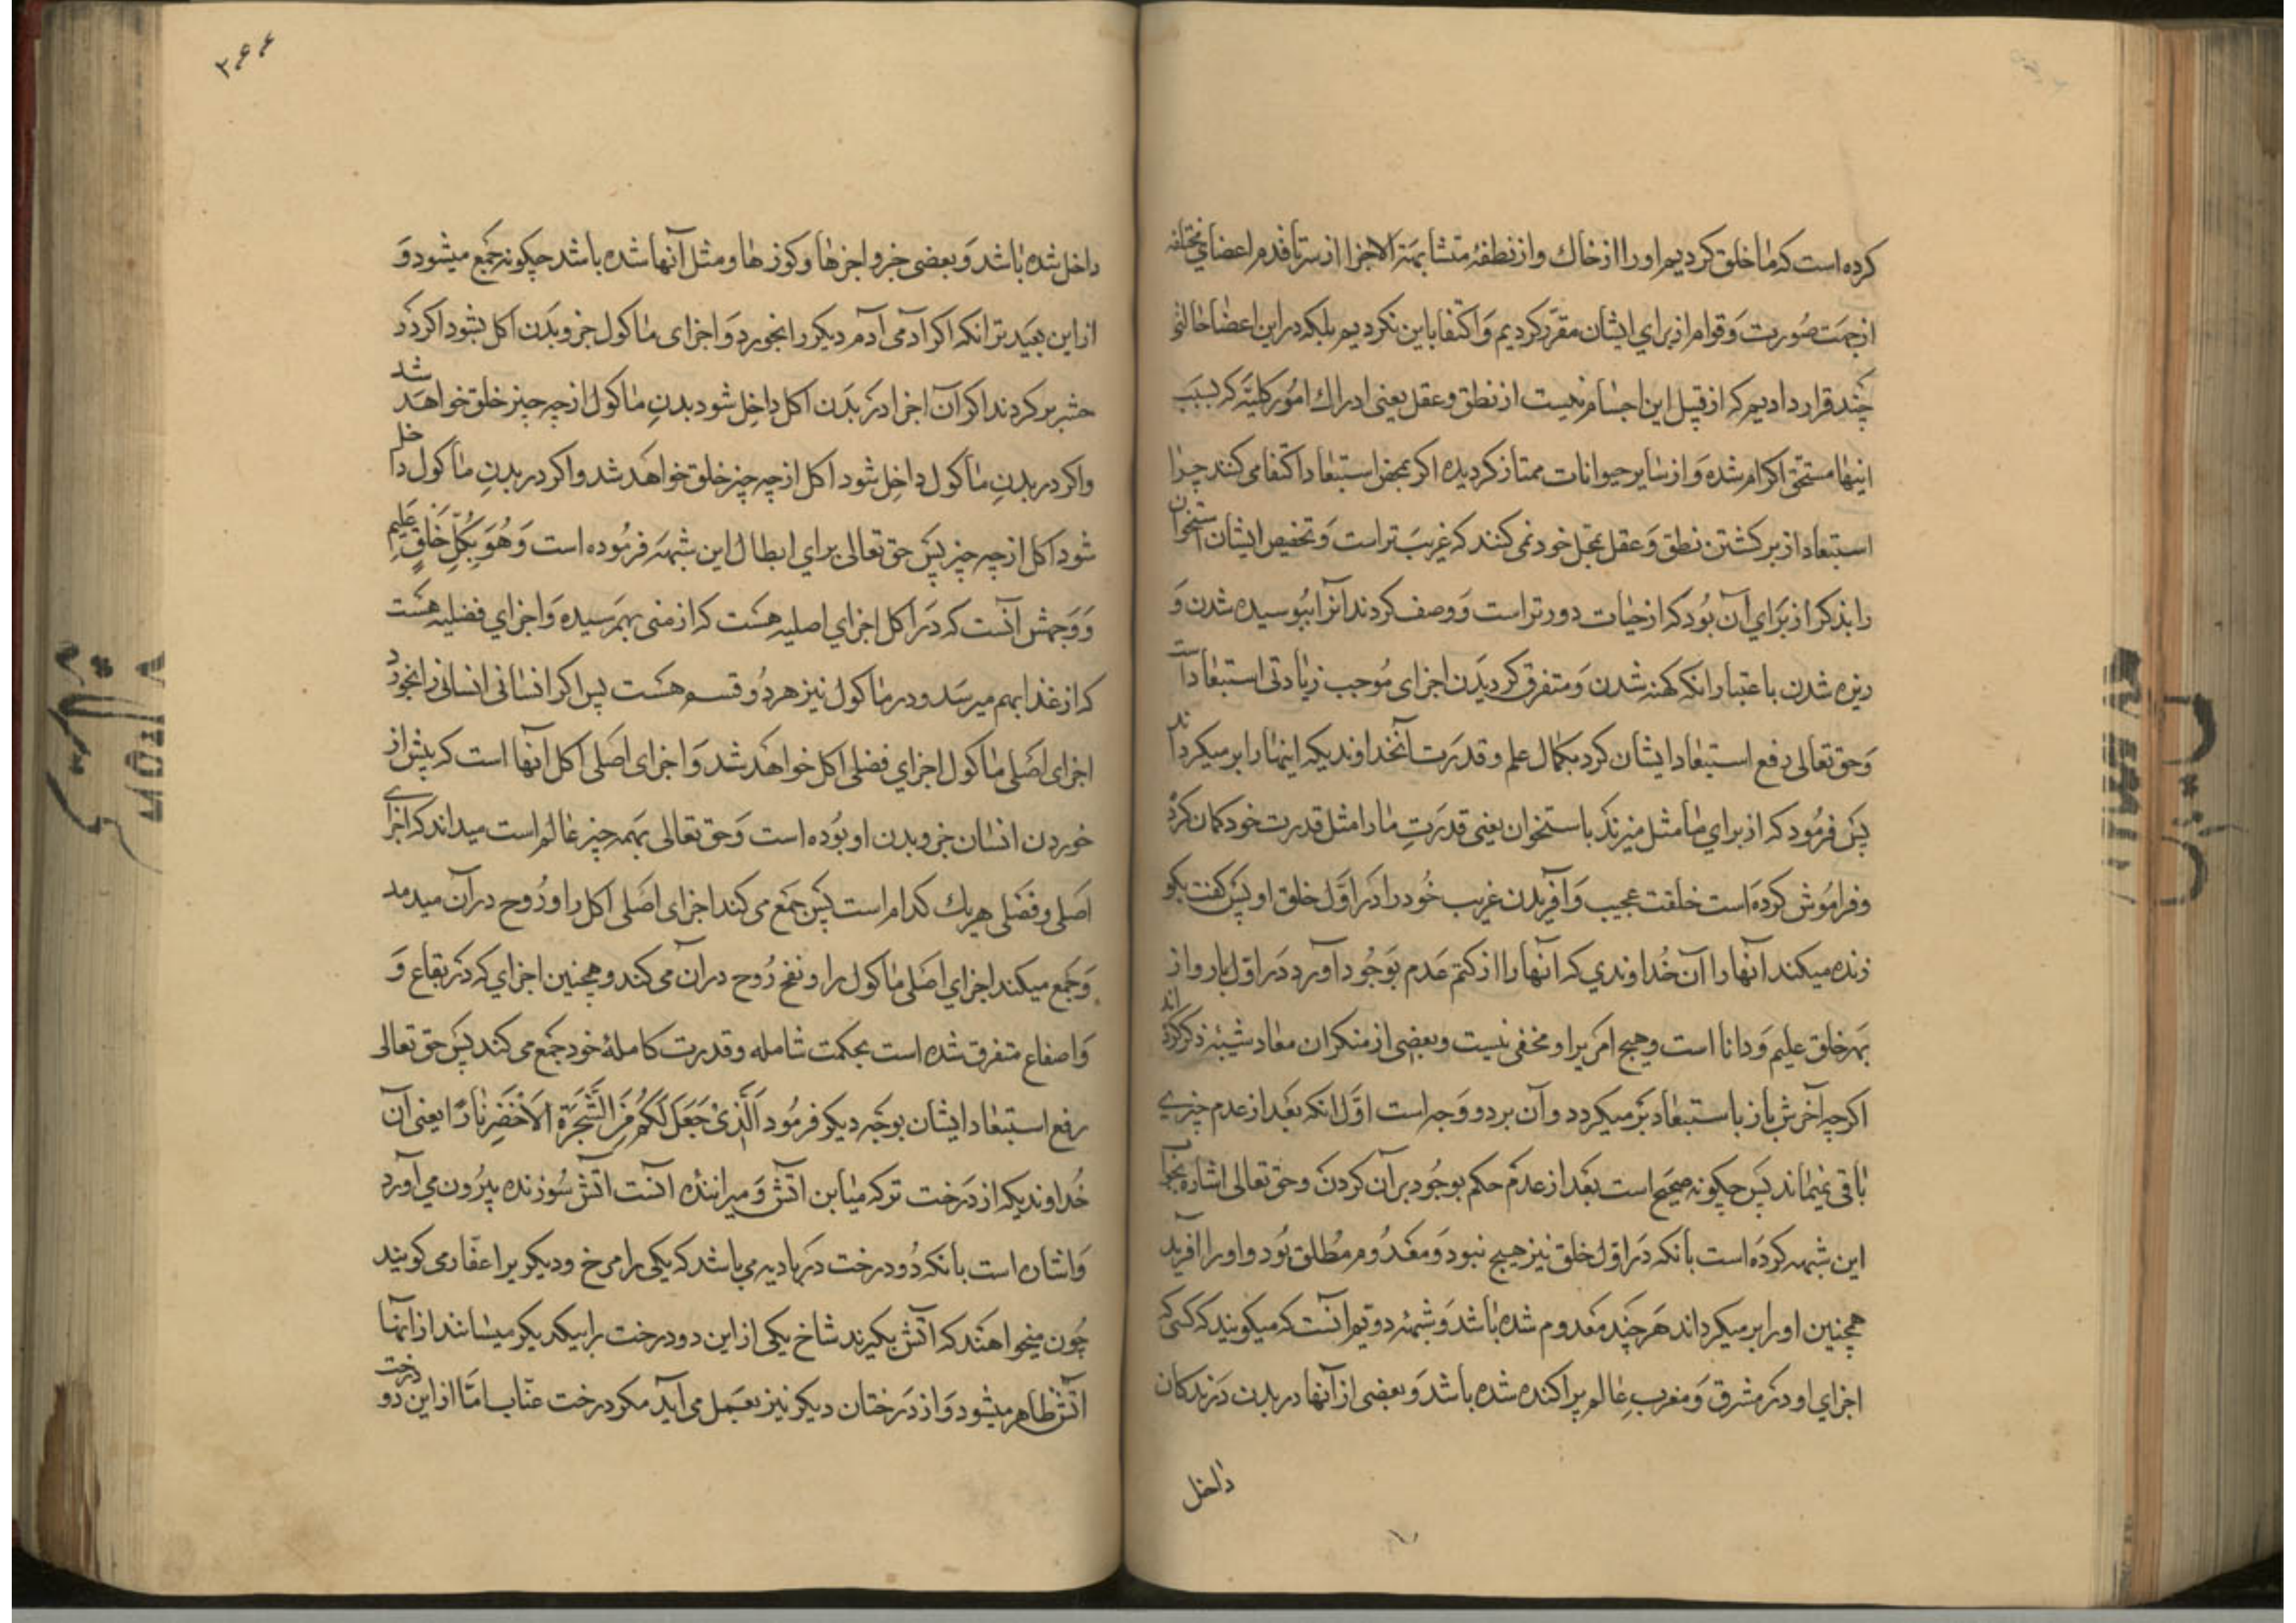 کرده است که ما خلق کردیم او را از خاک و از نطفهٔ متشابهة الاجزا از سر تا قدم اعضای مختلفه
از جهت صورت و قوام از برای ایشان مقرّر کردیم و اکتفا باین نکردیم بلکه در این اعضا حالتی
چند قرار دادیم که از قبیل این اجسام نیست از نطق و عقل یعنی ادراك امور کلیّه که بسبب
اینها مستحق اکرام شده و از سایر حیوانات ممتاز کردیده اکر بمحض استبعاد اکتفا می کنند چرا
استبعاد از بر کشتن نطق و عقل بمحل خود نمی کنند که غریب تر است و تخصیص ایشان استخوان
را بذکر از برای آن بود که از حیات دورتر است و وصف کردند انرا ببوسیده شدن و
ریزه شدن باعتبار انکه کهنه شدن و متفرق کردیدن اجزای موجب زیادتی استبعاد است
و حق تعالی دفع استبعاد ایشان کرد بکمال علم و قدرت آنخداوندیکه اینها را بر میکرداند
پس فرمود که از برای ما مثل میزند باستخوان یعنی قدرت ما را مثل قدرت خود کمان کرد
و فراموش کرده است خلقت عجیب و آفریدن غریب خود را در اوّل خلق او پس کفت بکو
زنده میکند آنها را آن خداوندي که آنها را از کتم عدم بوجود آورد در اول بار و از
بهر خلق علیم و دانا است و هیچ امر بر او مخفی نیست و بعضی از منکران معاد شبهٔ ذکر کرده اند
اکرچه آخرش باز باستبعاد بر میکردد و آن بر دو وجه است اوّل انکه بعد از عدم چیزي
باقی نمیماند پس چکونه صحیح است بعد از عدم حکم بوجود بر آن کردن و حق تعالی اشاره بجواب
این شبهه کرده است بانکه در اول خلق نیز هیچ نبود و معدوم مطلق بود و او را آفرید
همچنین او را بر میکرداند هر چند معدوم شده باشد و شبههٔ دویم آنست که میکویند که کسی که
اجزاي او در مشرق و مغرب عالم پراکنده شده باشد و بعضی از آنها در بدن درندکان
داخل
۳۶۶
داخل شده باشد و بعضی جزو اجزها و کوزها و مثل آنها شده باشد چکونه جمع میشود و
از این بعید تر انکه اکر آدمی آدم دیکر را بخورد و اجزای ماکول جزو بدن اکل بشود اکر در
حشر بر کردند اکر آن اجزا در بدن اکل داخل شود بدن ماکول از چه چیز خلق خواهد شد
و اکر در بدن ماکول داخل شود اکل از چه چیز خلق خواهد شد و اکر در بدن ماکول داخل
شود اکل از چه چیز پس حق تعالی براي ابطال این شبهه فرموده است وَهُوَ بِكُلِّ خَلْقٍ عَلِيم
و وجهش آنست که در اکل اجزاي اصلیه هست که از منی بهمرسیده و اجزاي فضلیه هست
که از غذا بهم میرسد و در ماکول نیز هر دو قسم هست پس اکر انسانی انسانی را بخورد
اجزای اصلی ماکول اجزاي فضلی اکل خواهد شد و اجزای اصلی اکل آنها است که پیش از
خوردن انسان جزو بدن او بوده است و حق تعالی بهمه چیز عالم است میداند که اجزای
اصلی و فضلی هریك کدام است پس جمع می کند اجزای اصلی اکل را و روح در آن میدمد
و جمع میکند اجزاي اصلی ماکول را و نفخ روح در آن می کند و همچنین اجزاي که در بقاع و
و اصقاع متفرق شده است بحکمت شامله و قدرت کاملهٔ خود جمع می کند پس حق تعالی
رفع استبعاد ایشان بوجه دیکر فرمود اَلَّذِیْ جَعَلَ لَکُمْ مِنَ الشَّجَرَةِ الْاَخْضَرِ نَارًا یعنی آن
خداوندیکه از درخت تر که مباین آتش و میراننده آنست آتش سوزنده بیرون می آورد
و اشاره است بانکه دو درخت در بادیه می باشد که یکی را مرخ و دیکر یرا عفّار می کویند
چون میخواهند که آتش بکیرند شاخ یکی از این دو درخت را بیکدیکر میسایند از آنها
آتش ظاهر میشود و از درختان دیکر نیز بعمل می آید مکر درخت عنّاب امّا از این دو درخت